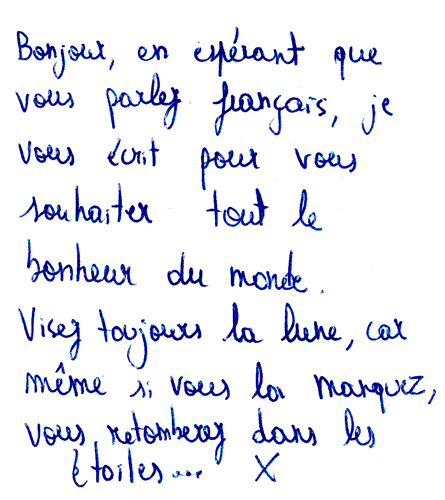 Bonjour, en espérant que
vous parlez français, je
vous écrit pour vous
souhaiter tout le
bonheur du monde.
Visez toujours la lune, car
même si vous la manquez,
vous retomberez dans les
étoiles... X